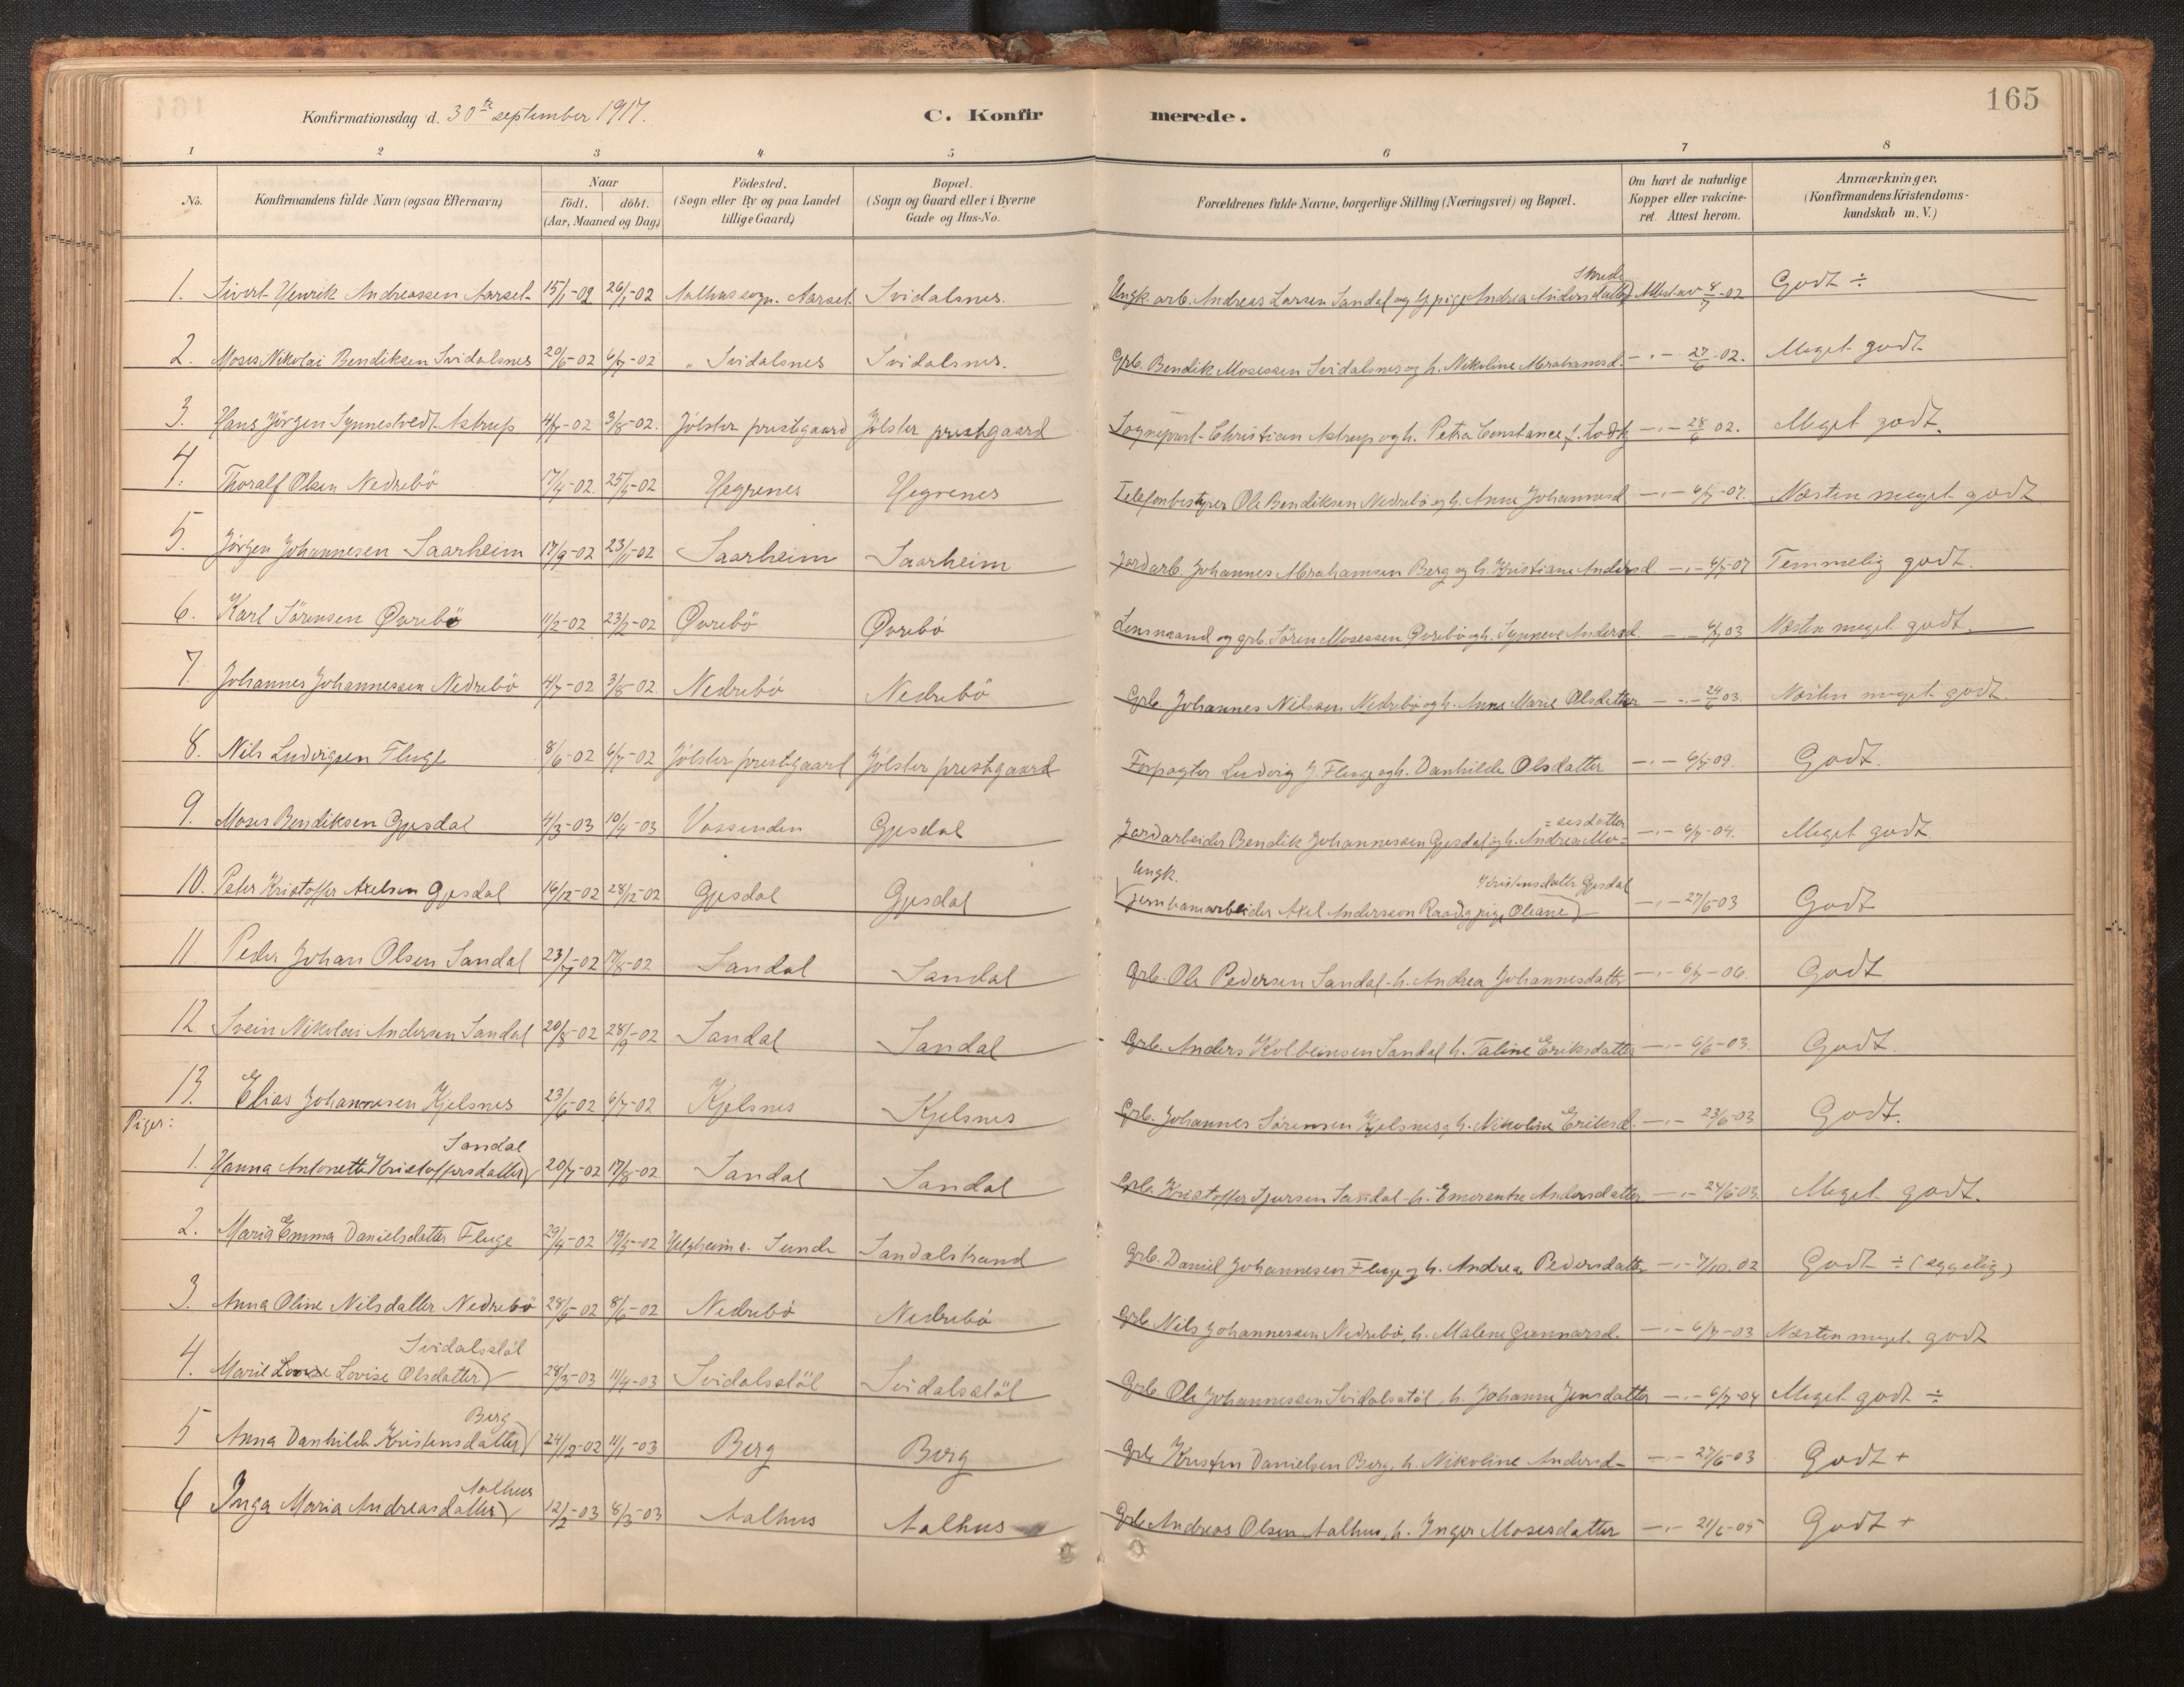 165
Konfirmationsdag d. 30te september 1917.
C. Konfirmerede.
1 2 3 4 5 6 7 8
No. Konfirmandens fulde Navn (ogsaa Efternavn) Naar födt. döbt. (Aar, Maaned og Dag) Födested. (Sogn eller By og paa Landet tillige Gaard) Bopæl. (Sogn og Gaard eller i Byerne Gade og Hus-No. Forældrenes fulde Navne, borgerlige Stilling (Næringsvei) og Bopæl. Om havt de naturlige Kopper eller vakcineret. Attest herom. Anmærkninger. (Konfirmandens Kristendomskundskab m. V.)
1. Sivert Henrik Andreassen Aarset 15/1-02 26/1-02 Aalhus sogn. Aarset Svidalsnes. Ungk. arb. Andreas Larsen Sandal og gpige Andrea Andersdatter Skrede Attest av 8/7-02 Godt ÷
2. Moses Nikolai Bendiksen Svidalsnes 20/5-02 6/7-02 " Svidalsnes Svidalsnes. Grb. Bendik Mosessen Svidalsnes og h. Nikoline Abrahamsd. -"- 27/6-02. Meget godt
3. Hans Jörgen Synnestvedt Astrup 4/7-02 3/8-02. Jölster prestgaard Jölster prestgaard Sogneprest Christian Astrup og h. Petra Constance f. -"- 28/6 02. Meget godt.
4. Thoralf Olsen Nedrebö 17/4-02. 25/5-02 Hegrenes Hegrenes Telefonbestyrer Ole Bendiksen Nedrebö og h. Anne Johannesd -"- 6/7-07. Næsten meget godt
5. Jörgen Johannesen Saarheim 17/9-02 23/11-02 Saarheim Saarheim Jordarb. Johannes Abrahamsen Berg og h. Kristiane Andersd. -"- 6/7-07 Temmelig godt.
6. Karl Sörensen Øvrebö 11/2-02 23/2-02 Øvrebö Øvrebö Lensmand og grb. Sören Mosessen Øvrebö og h. Synneve Andersd. -"- 6/7 03 Næsten meget godt.
7. Johannes Johannessen Nedrebö 4/7-02 3/8-02. Nedrebö Nedrebö Grb. Johannes Nilssen Nedrebö og h. Anne Marie Olsdatter -"- 24/6 03. Næsten meget godt.
8. Nils Ludvigsen Fluge 8/6-02 6/7-02 Jölster prestgaard Jölster prestgaard Forpagter Ludvig J. Fluge og h. Danhilde Olsdatter -"- 6/7-09. Godt.
9. Moses Bendiksen Gjesdal 4/3-03 10/4-03 Vassenden Gjesdal Jordarbeider Bendik Johannessen Gjesdal og h. Andrea Mo=
=sesdatter -"- 6/7-04. Meget godt.
10. Peter Kristoffer Axelsen Gjesdal 16/12-02 28/12-02 Gjesdal Gjesdal Ungk. jernbanearbeider Axel Anderssen Raad g pige Oliane Kristensdatter Gjesdal -"- 27/6-03 Godt
11. Peder Johan Olsen Sandal 23/7-02 17/8-02 Sandal Sandal Grb. Ole Pedersen Sandal - h. Andrea Johannesdatter -"- 6/7-06. Godt
12. Svein Nikolai Andersen Sandal 20/8-02 28/9-02 Sandal Sandal Grb. Anders Kolbeinsen Sandal h. Taline Eriksdatter -"- 6/6-03. Godt.
13. Elias Johannesen Kjelsnes 23/6-02 6/7-02 Kjelsnes Kjelsnes Grb. Johannes Sörensen Kjelsnes, h. Nikoline Eriksd. -"- 23/6-03 Godt.
Piger:
1. Hanna Antonette Kristoffersdatter Sandal 20/7-02 17/8-02 Sandal Sandal Grb. Kristoffer Sjursen Sandal - h. Emerentze Andersdatter -"- 24/6-03. Meget godt.
2. Maria Emma Danielsdatter Fluge 29/4-02 19/5-02 Helgheim s. Sunde Sandalstrand Grb. Daniel Johannesen Fluge og h. Andrea Pedersdatter -"- 7/10. 02 Godt ÷
3. Anna Oline Nilsdatter Nedrebö 28/5-02 8/6-02 Nedrebö Nedrebö Grb. Nils Johannessen Nedrebö, h. Malene Gunnarsd. -"- 6/7-03 Næsten meget godt
4. Marie Lovise Olsdatter Svidalsstöl 28/3-03 11/4-03 Svidalsstöl Svidalsstöl Grb. Ole Johannessen Svidalsstöl, h. Johanne Jensdatter -"- 6/7-04 Meget godt ÷
5 Anna Danhilde Kristensdatter Berg 24/12-02 11/1-03 Berg Berg Grb. Kristen Danielsen Berg, h. Nikoline Andersd- -"- 27/6-03 Godt +
6 Inga Maria Andreasdatter Aalhus 12/2-03 8/3-03 Aalhus Aalhus Grb. Andreas Olsen Aalhus, h. Inger Mosesdatter -"- 21/6-05 Godt +